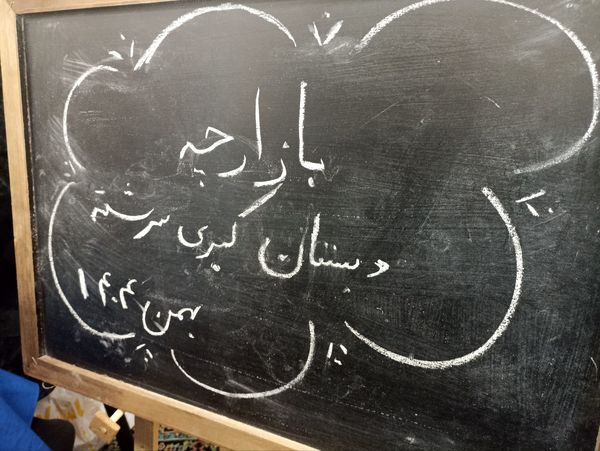 بازارچه
دبستان کبری سرشته
بهمن ۱۴۰۴